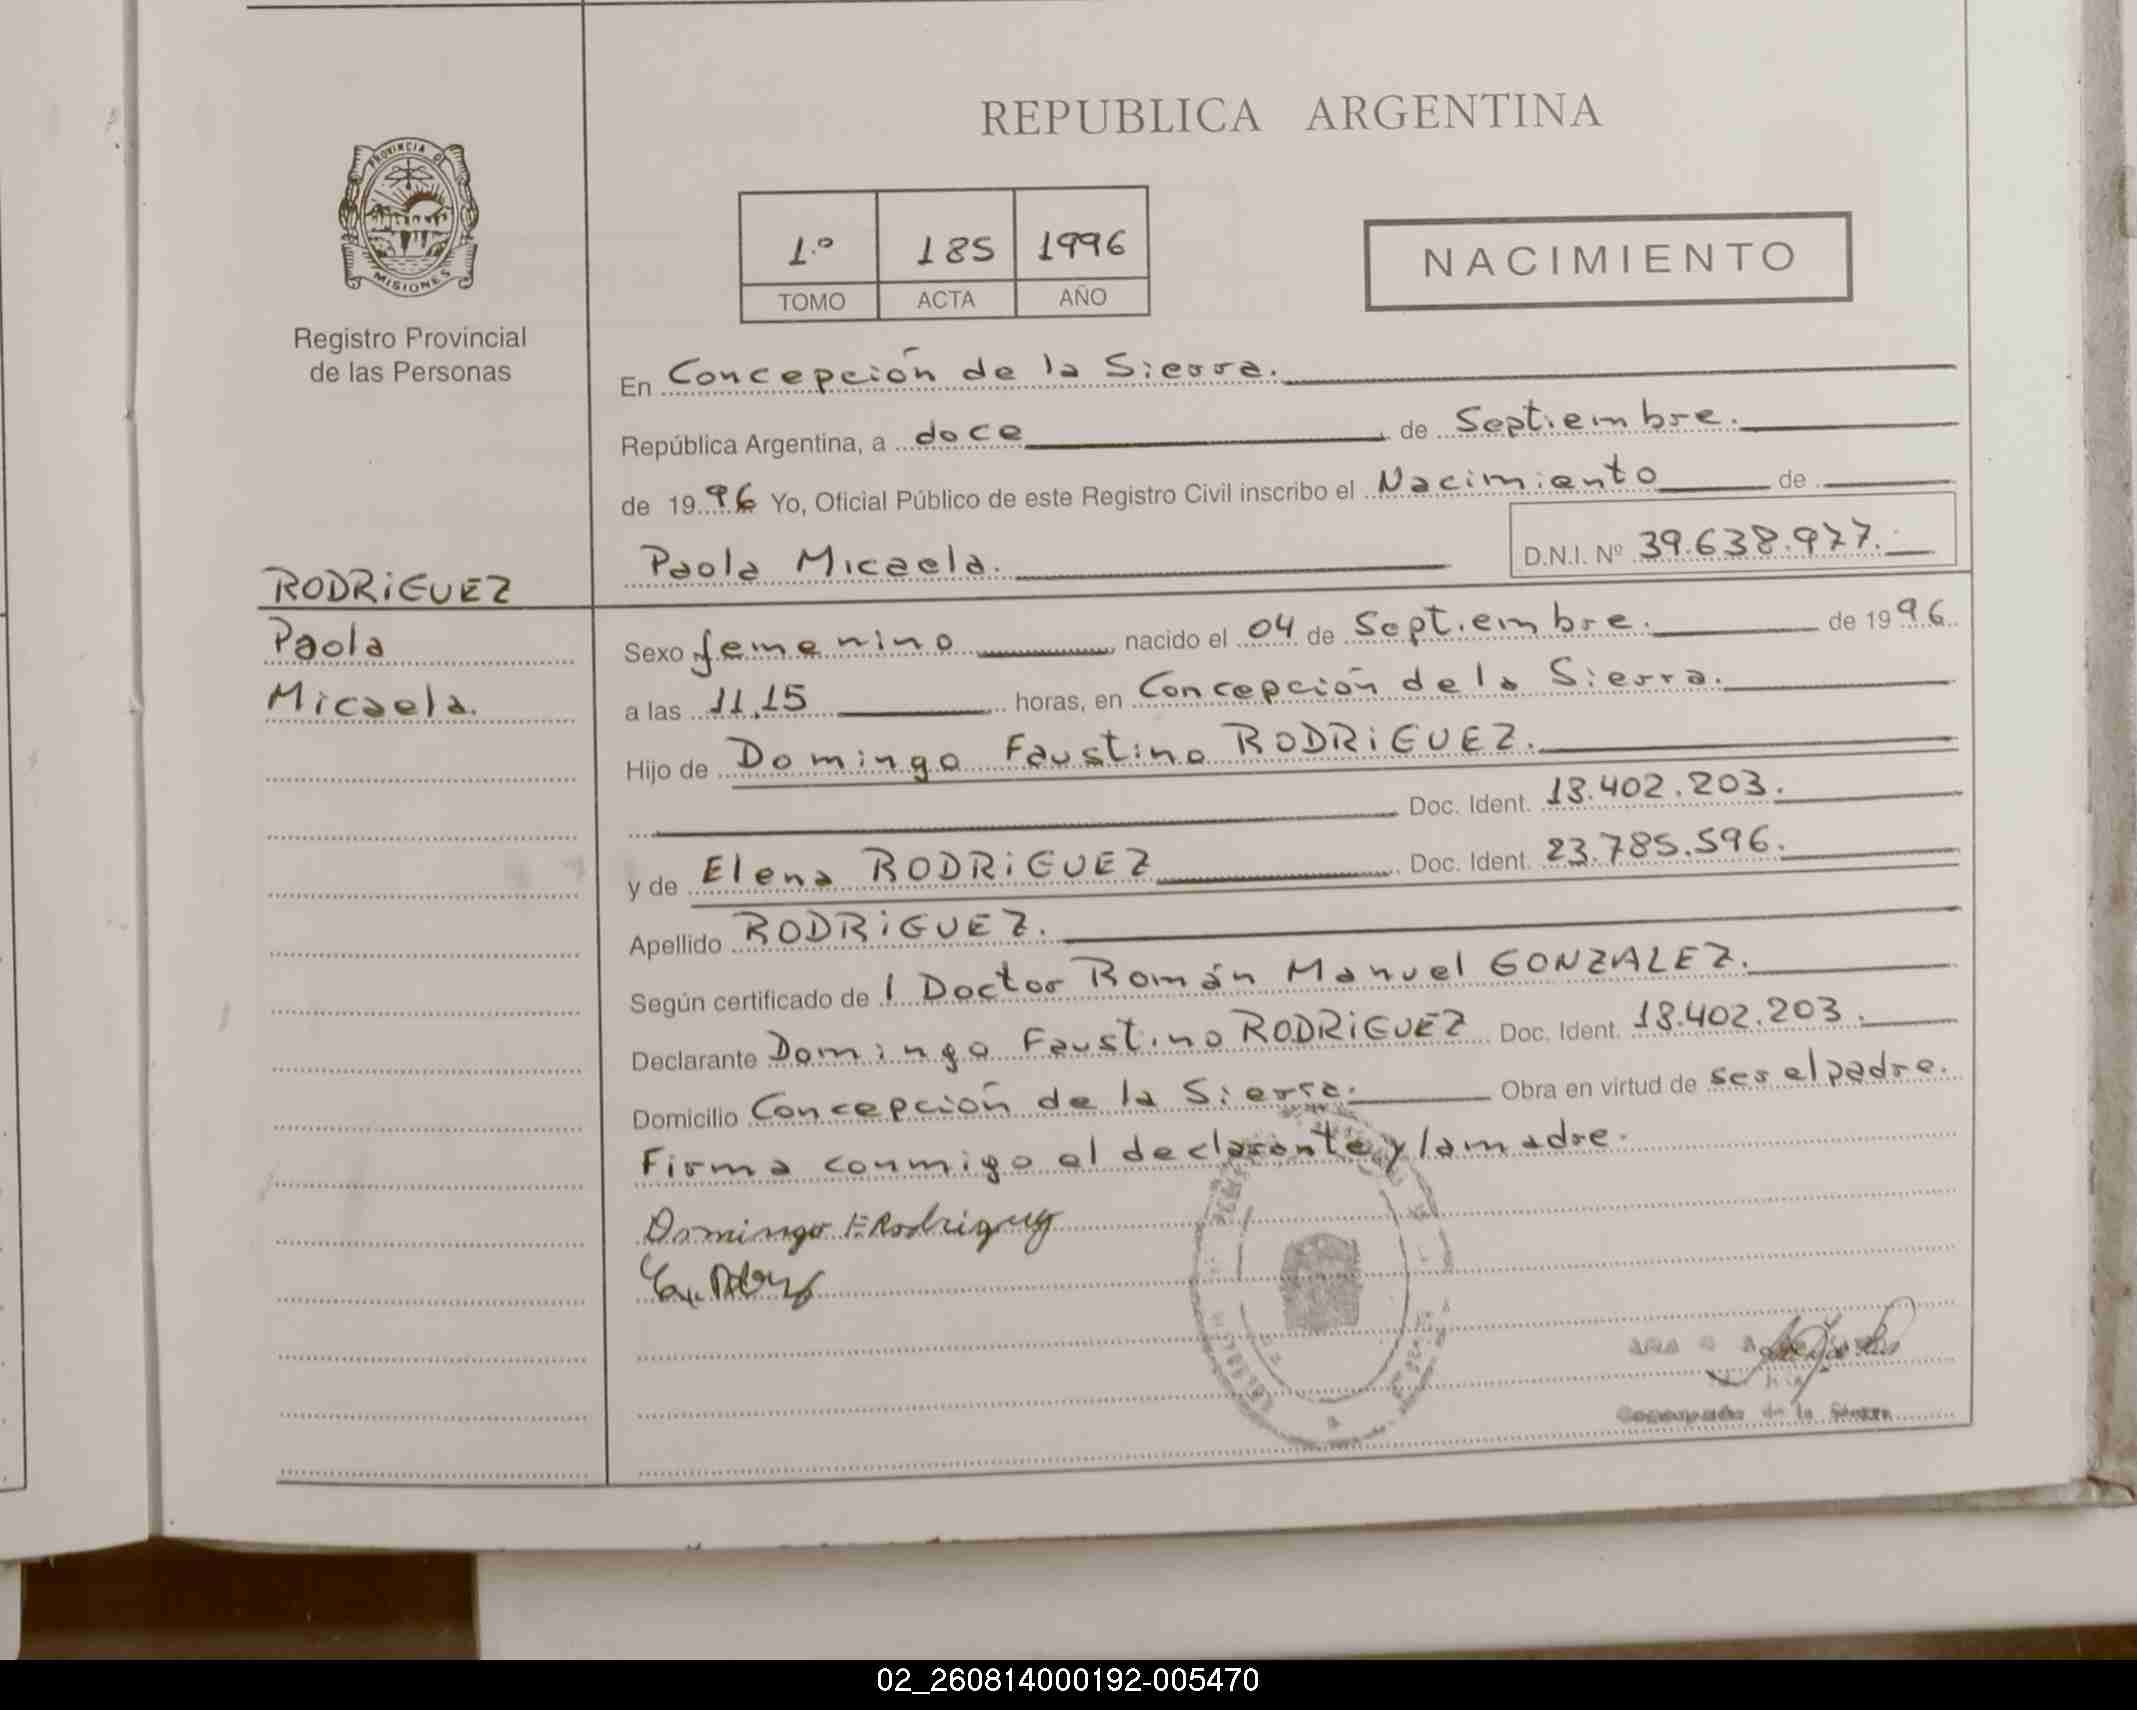 REPUBLICA ARGENTINA
PROVINCIA DE
MISIONES
Registro Provincial
de las Personas
1.º 185 1996
TOMO ACTA AÑO
NACIMIENTO
En Concepción de la Sierra.
República Argentina, a doce de Septiembre.
de 1996 Yo, Oficial Público de este Registro Civil inscribo el Nacimiento de
Paola Micaela. D.N.I. Nº 39.638.977.
RODRiGUEZ
Paola
Micaela.
Sexo femenino, nacido el 04 de Septiembre. de 1996.
a las 11,15 horas, en Concepción de la Sierra.
Hijo de Domingo Faustino RODRiGUEZ.
Doc. Ident. 18.402.203.
y de Elena RODRiGUEZ, Doc. Ident. 23.785.596.
Apellido RODRiGUEZ.
Según certificado de l Doctor Román Manuel GONZALEZ.
Declarante Domingo Faustino RODRiGUEZ Doc. Ident. 18.402.203.
Domicilio Concepción de la Sierra. Obra en virtud de ser el padre.
Firma conmigo el declarante y la madre.
Domingo F. Rodriguez
de la Sierra
02_260814000192-005470